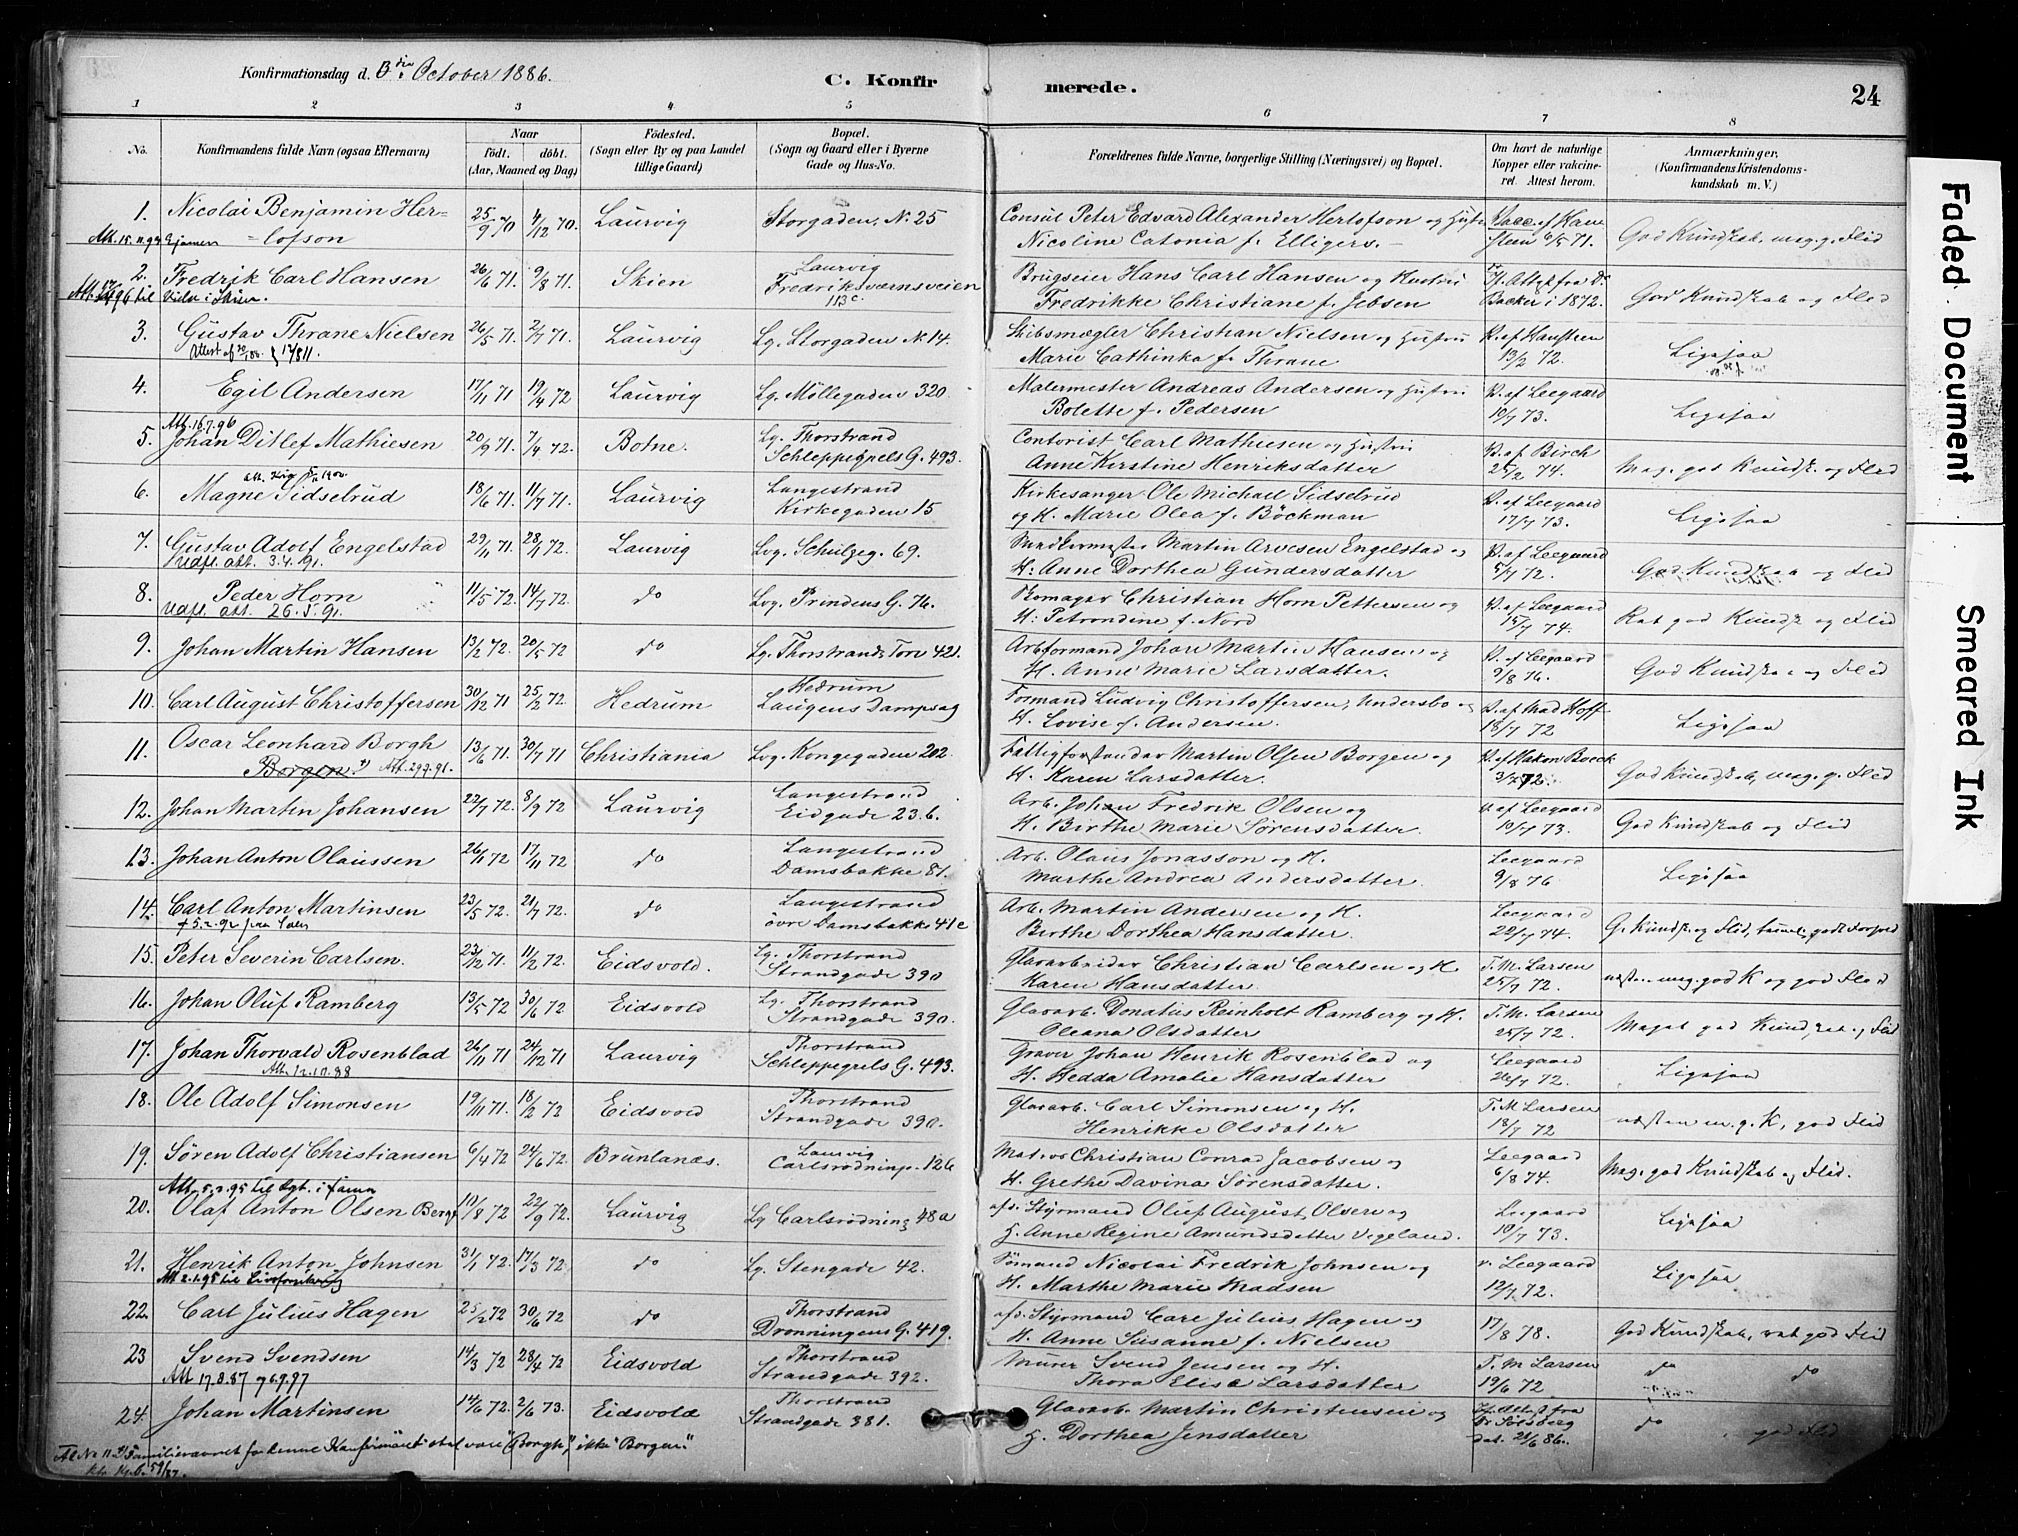 Konfirmationsdag d. 3die October 1886.
C. Konfirmerede.
24
1 2 3 4 5 6 7 8
No. Konfirmandens fulde Navn (ogsaa Efternavn)
Naar født. døbt. (Aar, Maaned og Dag)
Fødested. (Sogn eller By og paa Landet tillige Gaard)
Bopæl. (Sogn og Gaard eller i Byerne Gade og Hus-No.
Forældrenes fulde Navne, borgerlige Stilling (Næringsvei) og Bopæl.
Om havt de naturlige Kopper eller vakcineret. Attest herom.
Anmærkninger. (Konfirmandens Kristendomskundskab m. V.)
1. Nicolai Benjamin Her- 25/9 70 4/12 70. Laurvig Storgaden. N. 25 Consul Peter Edvard Alexander Herlofson og Hustru
=lofson Nicoline Catonia f. Elligers. 6/5 71. God Kundskab, meg. g. Flid
2. Fredrik Carl Hansen 26/6 71. 9/8 71. Skien Laurvig Fredriksværnsveien 113c Brugseier Hans Carl Hansen og Hustru
Fredrikke Christiane f. Jebsen Backer i 1872. God Kundskab og Flid
3. Gustav Thrane Nielsen 26/5 71. 2/7 71. Laurvig Lg. Storgaden N 14. Skibsmægler Christian Nielsen og Hustru
Marie Cathinka f. Thrane 13/2 72. Ligesaa
4. Egil Andersen 17/11 71 19/4 72 Laurvig Lg. Möllegaden 320. Malermester Andreas Andersen og Hustru V. af Leegaard
Bolette f. Pedersen 10/7 73. Ligesaa
Att. 16.7.96
5. Johan Ditlef Mathiesen 20/9 71. 7/4 72. Botne. Lg. Thorstrand Schleppegrels G. 493. Contorist Carl Mathiesen og Hustru V. af Birch
Anne Kirstine Henriksdatter 25/2 74. Meg. god Kundsk. og Flid
6. Magne Sidselrud 18/6 71. 11/7 71. Laurvig Langestrand Kirkegaden 15 Kirkesanger Ole Michael Sidselrud V. af Leegaard
og H. Marie Olea f. Böckman 17/7 73. Ligesaa
7. Gustav Adolf Engelstad 29/11 71. 28/1 72. Laurvig Lvg. Schulzeg. 69. Martin Arvesen Engelstad og V. af Leegaard
Udfl. att. 3.4.91. H. Anne Dorthea Gundersdatter 5/7 72. God Kundskab og Flid
8. Peder Horn 11/5 72. 14/7 72. do Lvg. Prindens G. 76. Skomager Christian Horn Pettersen og V. af Leegaard
Udfl. att. 26.5.91. H. Petrondine f. Nord 15/7 74. Ret god Kundsk og Flid
9. Johan Martin Hansen 13/2 72. 20/5 72 do Lg. Thorstrands Torv 421. Arbformand Johan Martin Hansen og V. af Leegaard
H. Anne Marie Larsdatter. 9/8 76. God Kundskab og Flid
10. Carl August Christoffersen 30/12 71 25/2 72. Hedrum Hedrum Laugens Dampsag Formand Ludvig Christoffersen, Undersbo og
H. Lovise f. Andersen. 18/7 72 Ligesaa
11. Oscar Leonhard Borgh 13/6 71. 30/7 71 Christiania Lvg. Kongegaden 202. Fattigforstander Martin Olsen Borgen og V. af Hakon Boeck
Borgen. *) H. Karen Larsdatter. God Kundskab, meg. g. Flid
12. Johan Martin Johansen 22/7 72. 8/9 72 Laurvig Langestrand Eidgade 23.b. Arb. Johan Fredrik Olsen og v. af Leegaard
H. Birthe Marie Sörensdatter. 10/7 73. God Kundskab og Flid
13. Johan Anton Olaussen 26/1 72 17/11 72 do Langestrand Damsbakke 81. Arb. Olaus Jonasson og H. Leegaard
Marthe Andrea Andersdatter. 9/8 76 Ligesaa
14. Carl Anton Martinsen 23/5 72. 21/7 72. do Langestrand övre Damsbakke 41c Arb. Martin Andersen og H. Leegaard
Birthe Dorthea Hansdatter. 22/7 74.
15. Peter Severin Carlsen. 23/12 71. 11/2 72. Eidsvold. Lg. Thorstrand Strandgade 390 Glasarbeider Christian Carlsen og H. T. M. Larsen
Karen Hansdatter. 25/7 72. næsten meg. god K og god Flid
16. Johan Oluf Ramberg 13/5 72 30/6 72 Eidsvold Lg. Thorstrand Strandgade 390. Glasarb. Donatus Reinholt Ramberg og H. T. M. Larsen
Oleana Olsdatter 25/7 72. Meget god Kundskab og Flid
17. Johan Thorvald Rosenblad 26/11 71 24/12 71 Laurvig Thorstrand Schleppegrels G. 493. Graver Johan Henrik Rosenblad og Leegaard
Att. 12.10.88 H. Hedda Amalie Hansdatter 26/7 72. Ligesaa
18. Ole Adolf Simonsen 19/11 71. 18/2 72 Eidsvold Thorstrand Strandgade 390. Glasarb. Carl Simonsen og H. T. M Larsen
Henrikke Olsdatter 18/7 72 næsten m. g. K, god Flid
19. Sören Adolf Christiansen 6/4 72 24/6 72. Brunlanæs. Laurvig Carlsrödning. 126 Matros Christian Conrad Jacobsen og Leegaard
H. Grethe Davina Sörensdatter. 6/8 74. Meg. god Kundskab og Flid.
20. Olaf Anton Olsen Berg 10/8 72 22/9 72. Laurvig Lg Carlsrödning 48a afd. Styrmand Oluf August Olsen og Leegaard
H. Anne Regine Amundsdatter Vegeland. 10/7 73. Ligesaa
21. Henrik Anton Johnsen 31/1 72. 17/3 72. do Lg. Stengade 42. Sömand Nicolai Fredrik Johnsen og v. Leegaard
H. Marthe Marie Knudsen 12/7 72. Ligesaa
22. Carl Julius Hagen 25/2 72 30/6 72 do Thorstrand Dronningens G. 419. afd. Styrmand Carl Julius Hagen og
H. Anne Susanne f. Nielsen 17/8 78. God Kundskab, ret god Flid
23 Svend Svendsen 14/3 72 28/4 72 Eidsvold Thorstrand Strandgade 392. Murer Svend Jensen og H. T. M Larsen
Att 17.8.87 og 6.9.97 Thora Elise Larsdatter 19/6 72. do do
24. Johan Martinsen 14/6 72. 2/6 73. Eidsvold Thorstrand Strandgade 381. Glasarb. Martin Christensen og
H. Dorthea Jensdatter dat. 21/6 86. do god Flid
Familienavnet for denne Konfirmant skal være "Borgh", ikke "Borgen."
Faded Document
Smeared Ink